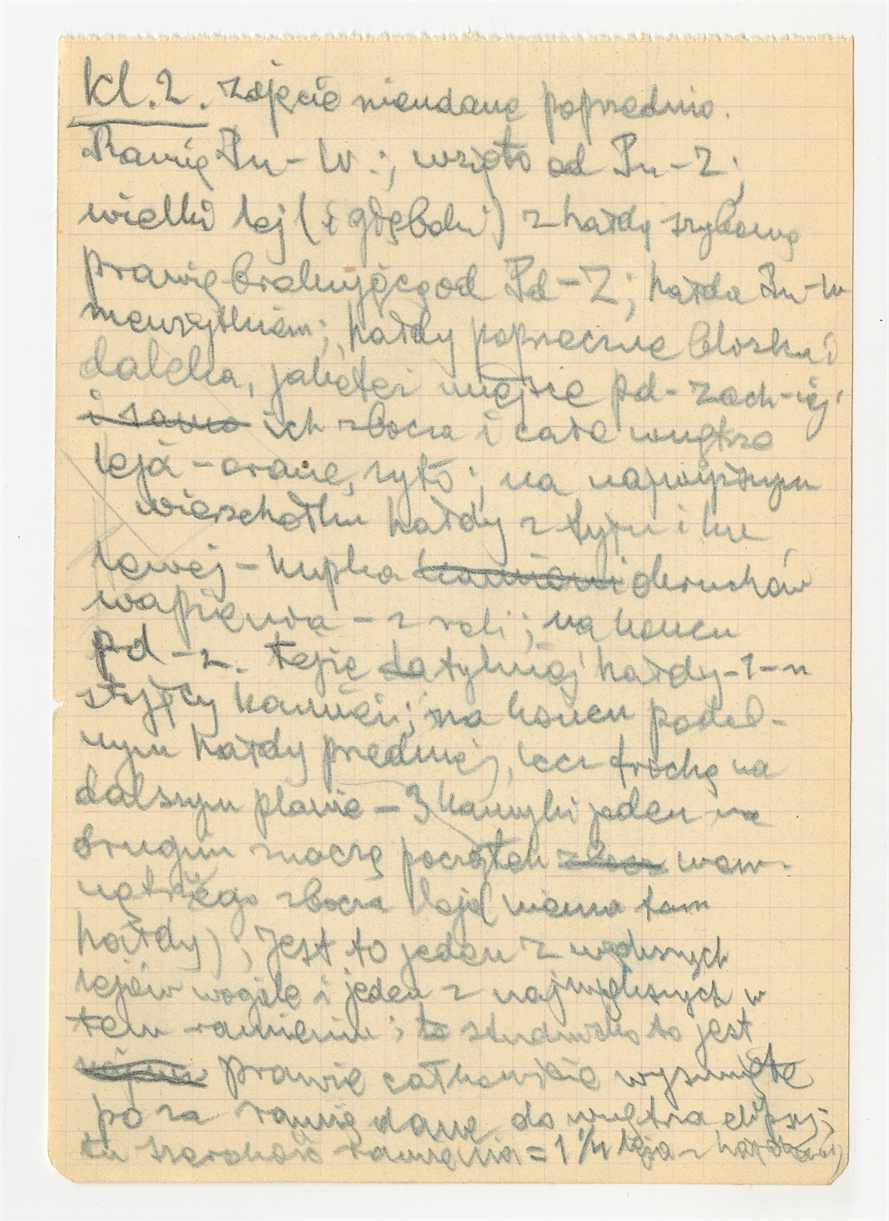 Kl. 2. zdjęcie nieudane poprzednio.
Ramię Pn – W.; wzięto od Pn – Z;
wielki lej (i głęboki) z hałdy szybową
prawie brakującą od Pd – Z; hałda Pn-W
hałdy poprzeczne bliska i
daleka, jakoteż miejsce pd-zach-iej
i samo ich zbocza i całe wnętrze
leja – orane, żyto; na najwyższym
wierzchołku hałdy z tyłu i ku
lewej – kupka kamieni okruchów
wapienia – z roli; na końcu
pd – z. tejże tylniej hałdy – 1 – n
kamień; na końcu podob-
nym hałdy przedniej, lecz trochę na
dalszym planie – 3 kamyki jeden na
drugim znaczą początek wewn-
nętrznego zbocza leja (niema tam
hałdy); jest to jeden z większych
lejów wogóle i jeden z największych w
tem ramieniu; to stanowisko to jest
prawie całkowicie wysunięte
poza ramię dane do wnętrza elipsy;
tu szerokość ramienia = 1 1/4 leja z hałdami